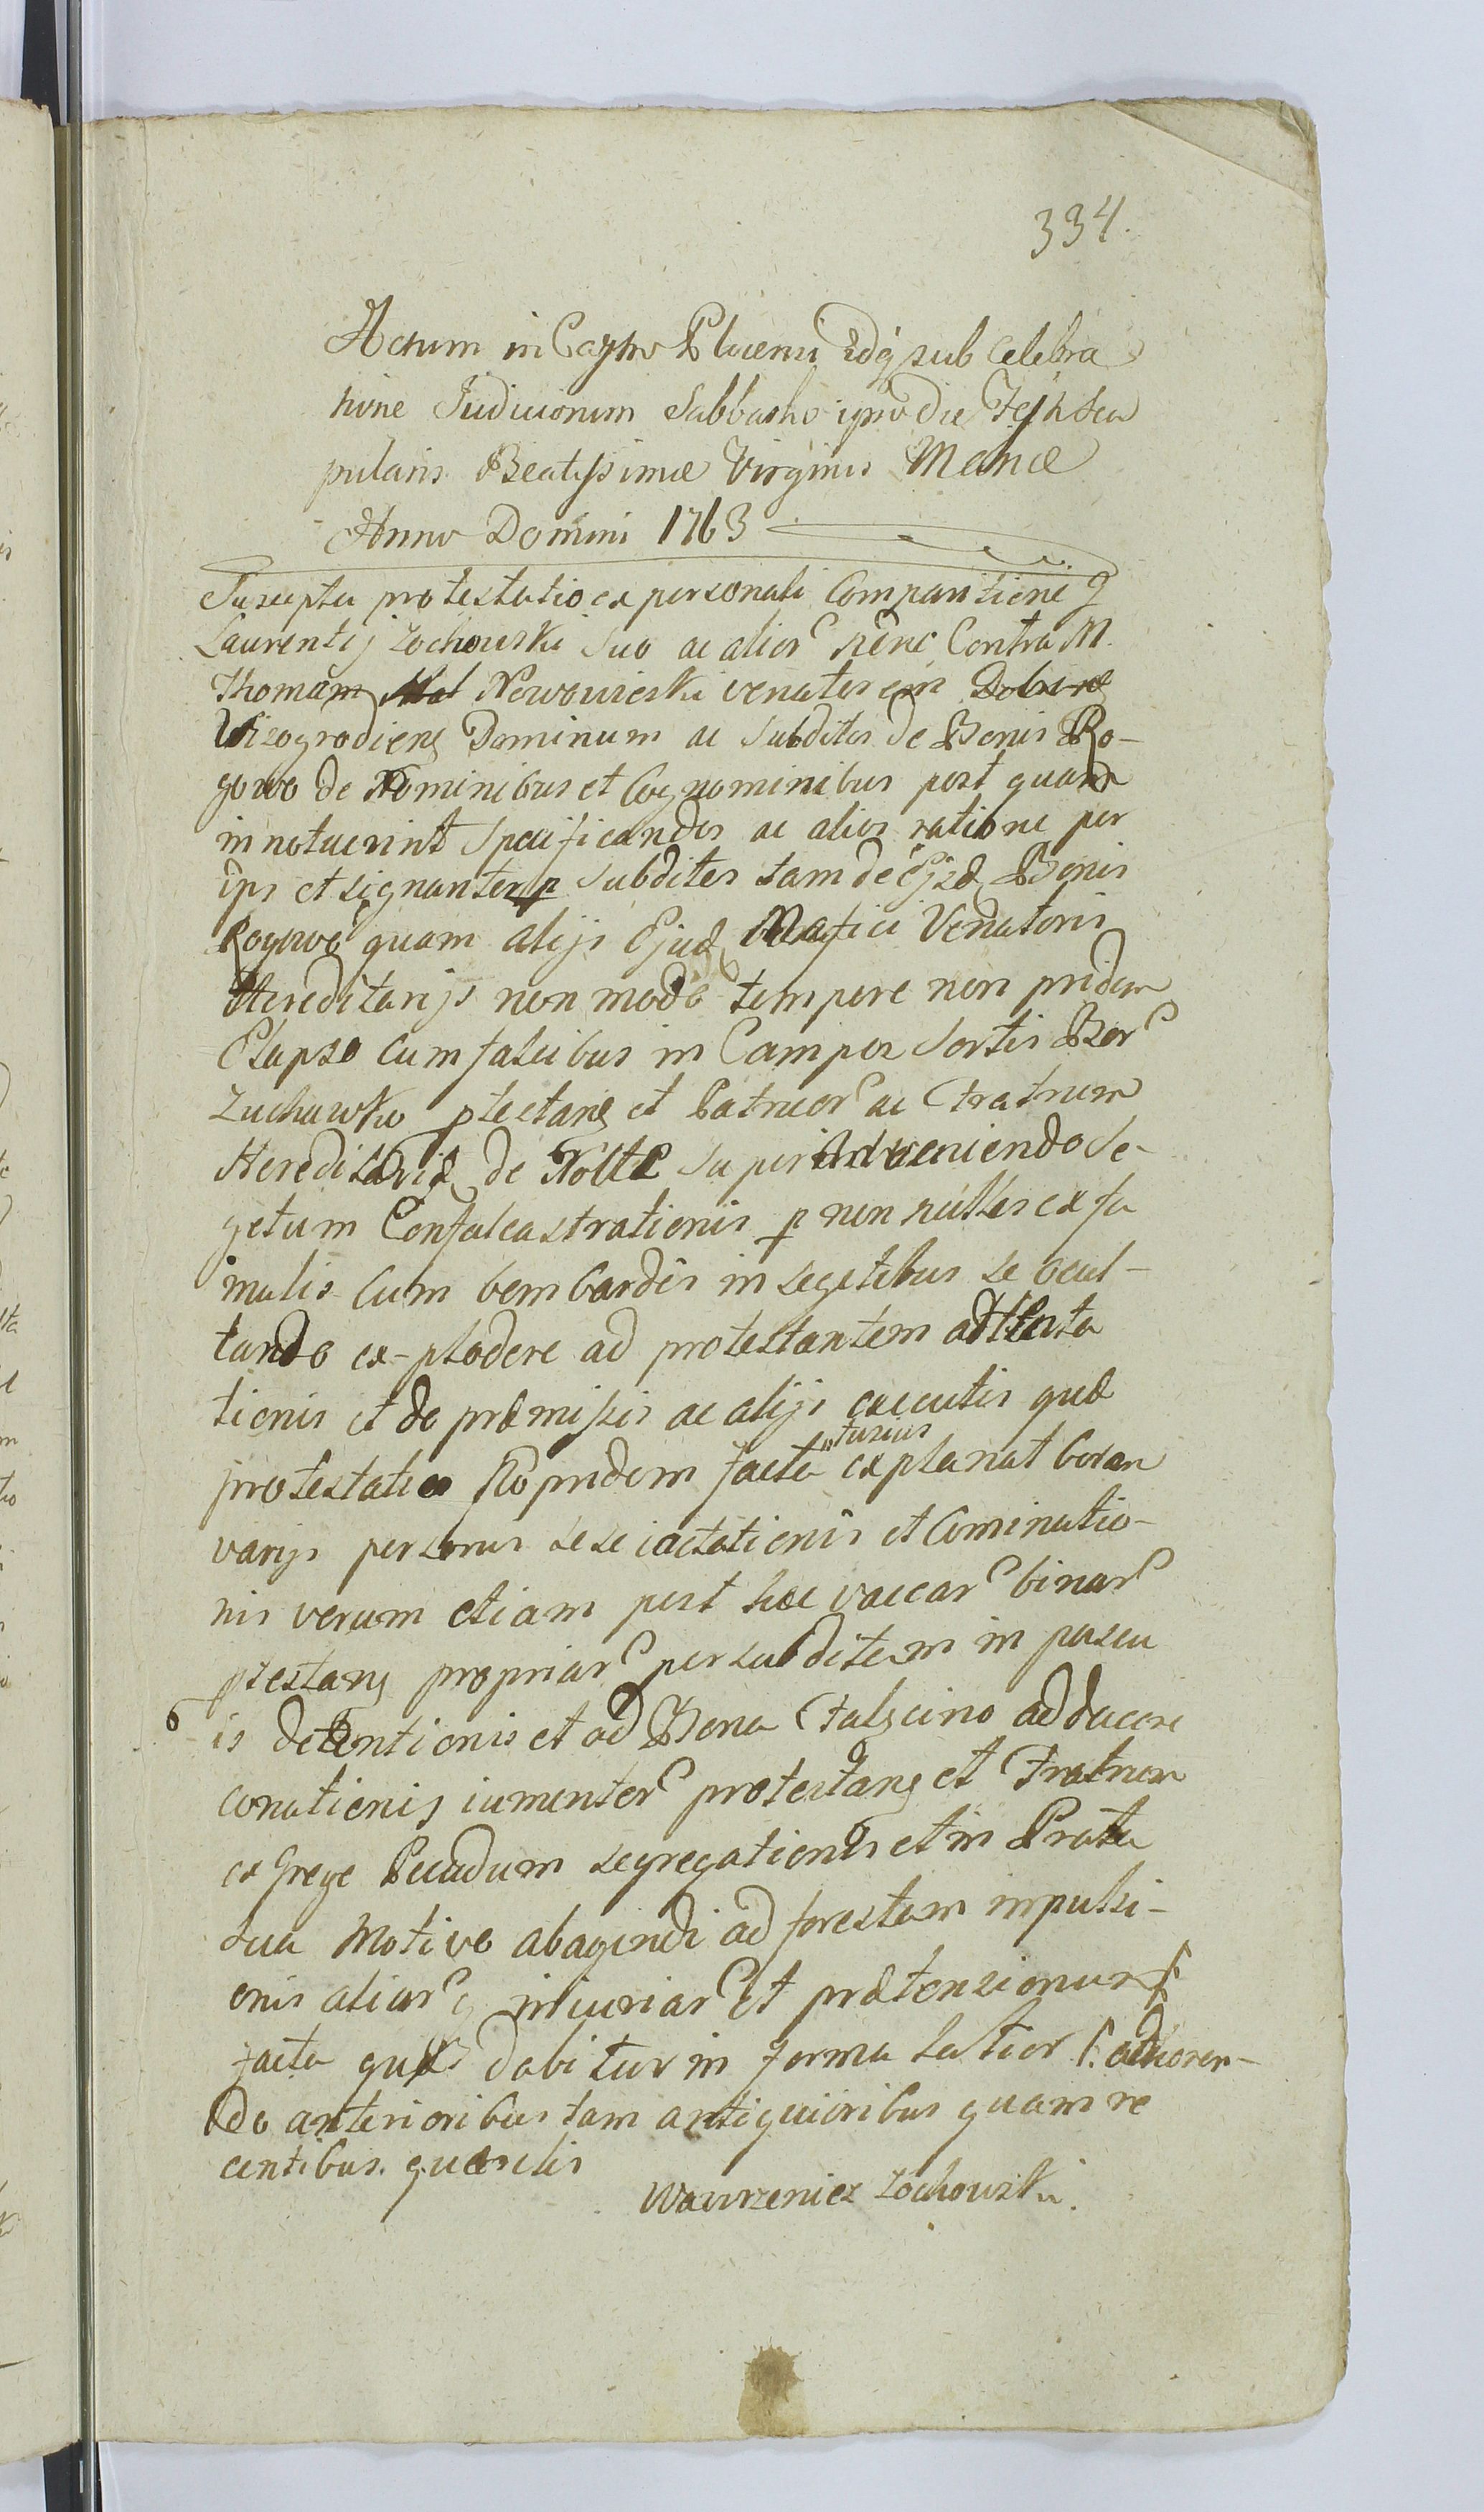 334.
Actum in Castro Plocensi idq sub Celebra
tione Judiciorum Sabbatho ipso die Festi Sca
pularis Beatissimæ Virginis Mariæ
Anno Domini 1763
Suscepta protestatio ex personali Comparitione G
Laurentij Zochowski suo ac alior nēne Contra M.
Thomam Nowowieski venatorem
Wizogrodiens Dominum ac Subditos de Bonis Ro-
gowo de Nominibus et Cognominibus post quam
innotuerint Specificandos ac alios ratione per
ips et signanter p Subditos tam de Ejsd Bonis
Rogowo quam alijs Ejusd Magfici Venatoris
Hereditarijs non modo tempore non pridem
Elapso cum falcibus in Campos Sortis Bor
Zuchowko ptestans et Patruor ac Fratrum
Hereditarid de Nocte Superadveniendo se-
getum Confalcastrationis p non nullos ex fa
mulis Cum bombardis in segetibus se ocul-
tando ex-plodere ad protestantem attenta
tionis et de præmissis ac alijs excutis quæ
protestatio no pridem facta fusius explanat Coram
varijs personis sese iactationis et Cominatio-
nis verum etiam post hæc vaccar binar
ptestans propriar per subditum in pascu
is detentionis et ad Bona Falscino adducere
conationis iumentor protestans et Fratrum
ex Grege Pecudum segregationis et in Prata
sua Motivo abagendi ad forestam impulsi-
onis aliarq iniuriar et prætensionum
facta quæ dabitur in forma latior adhæren-
do anterioribus tam antiquioribus quam re
centibus querelis
Wawrzeniec Zochowski.